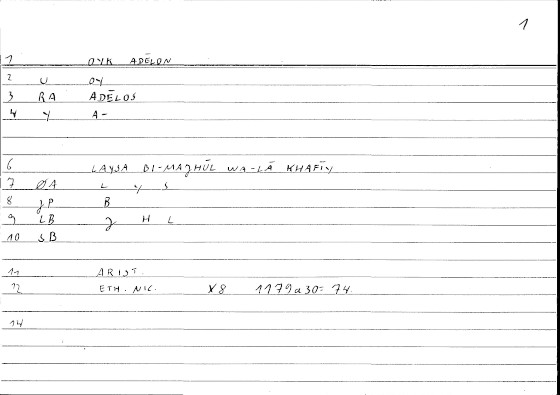 1
1 OYK ADĒLON
2 U OY
3 RA ADĒLOS
4 Y A-
6 LAYSA BI-MAJHŪL WA-LĀ KHAFĪY
7 ØA L Y S
8 JP B
9 LB J H L
10 SB
11 ARIST.
12 ETH. NIC. X8 1179a30= 74.
14